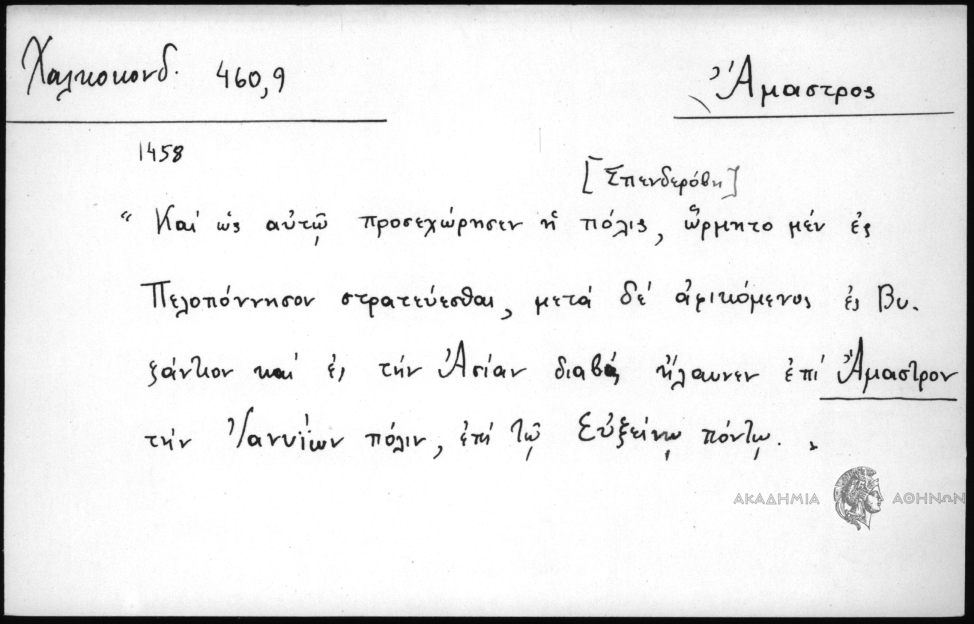 Χαλκοκονδ. 460,9
Ἄμαστρος
1458
[Σπενδερόβη]
“ Καί ὡς αὐτῷ προσεχώρησεν ἡ πόλις, ὥρμητο μέν ἐς
Πελοπόννησον στρατεύεσθαι, μετά δέ ἀφικόμενος ἐς Βυ-
ζάντιον καί ἐς τήν Ἀσίαν διαβάς ἤλαυνεν ἐπί Ἄμαστρον
τήν Ἰανυΐων πόλιν, ἐπί τῷ Εὐξείνῳ πόντῳ. „
ΑΚΑΔΗΜΙΑ ΑΘΗΝΩΝ